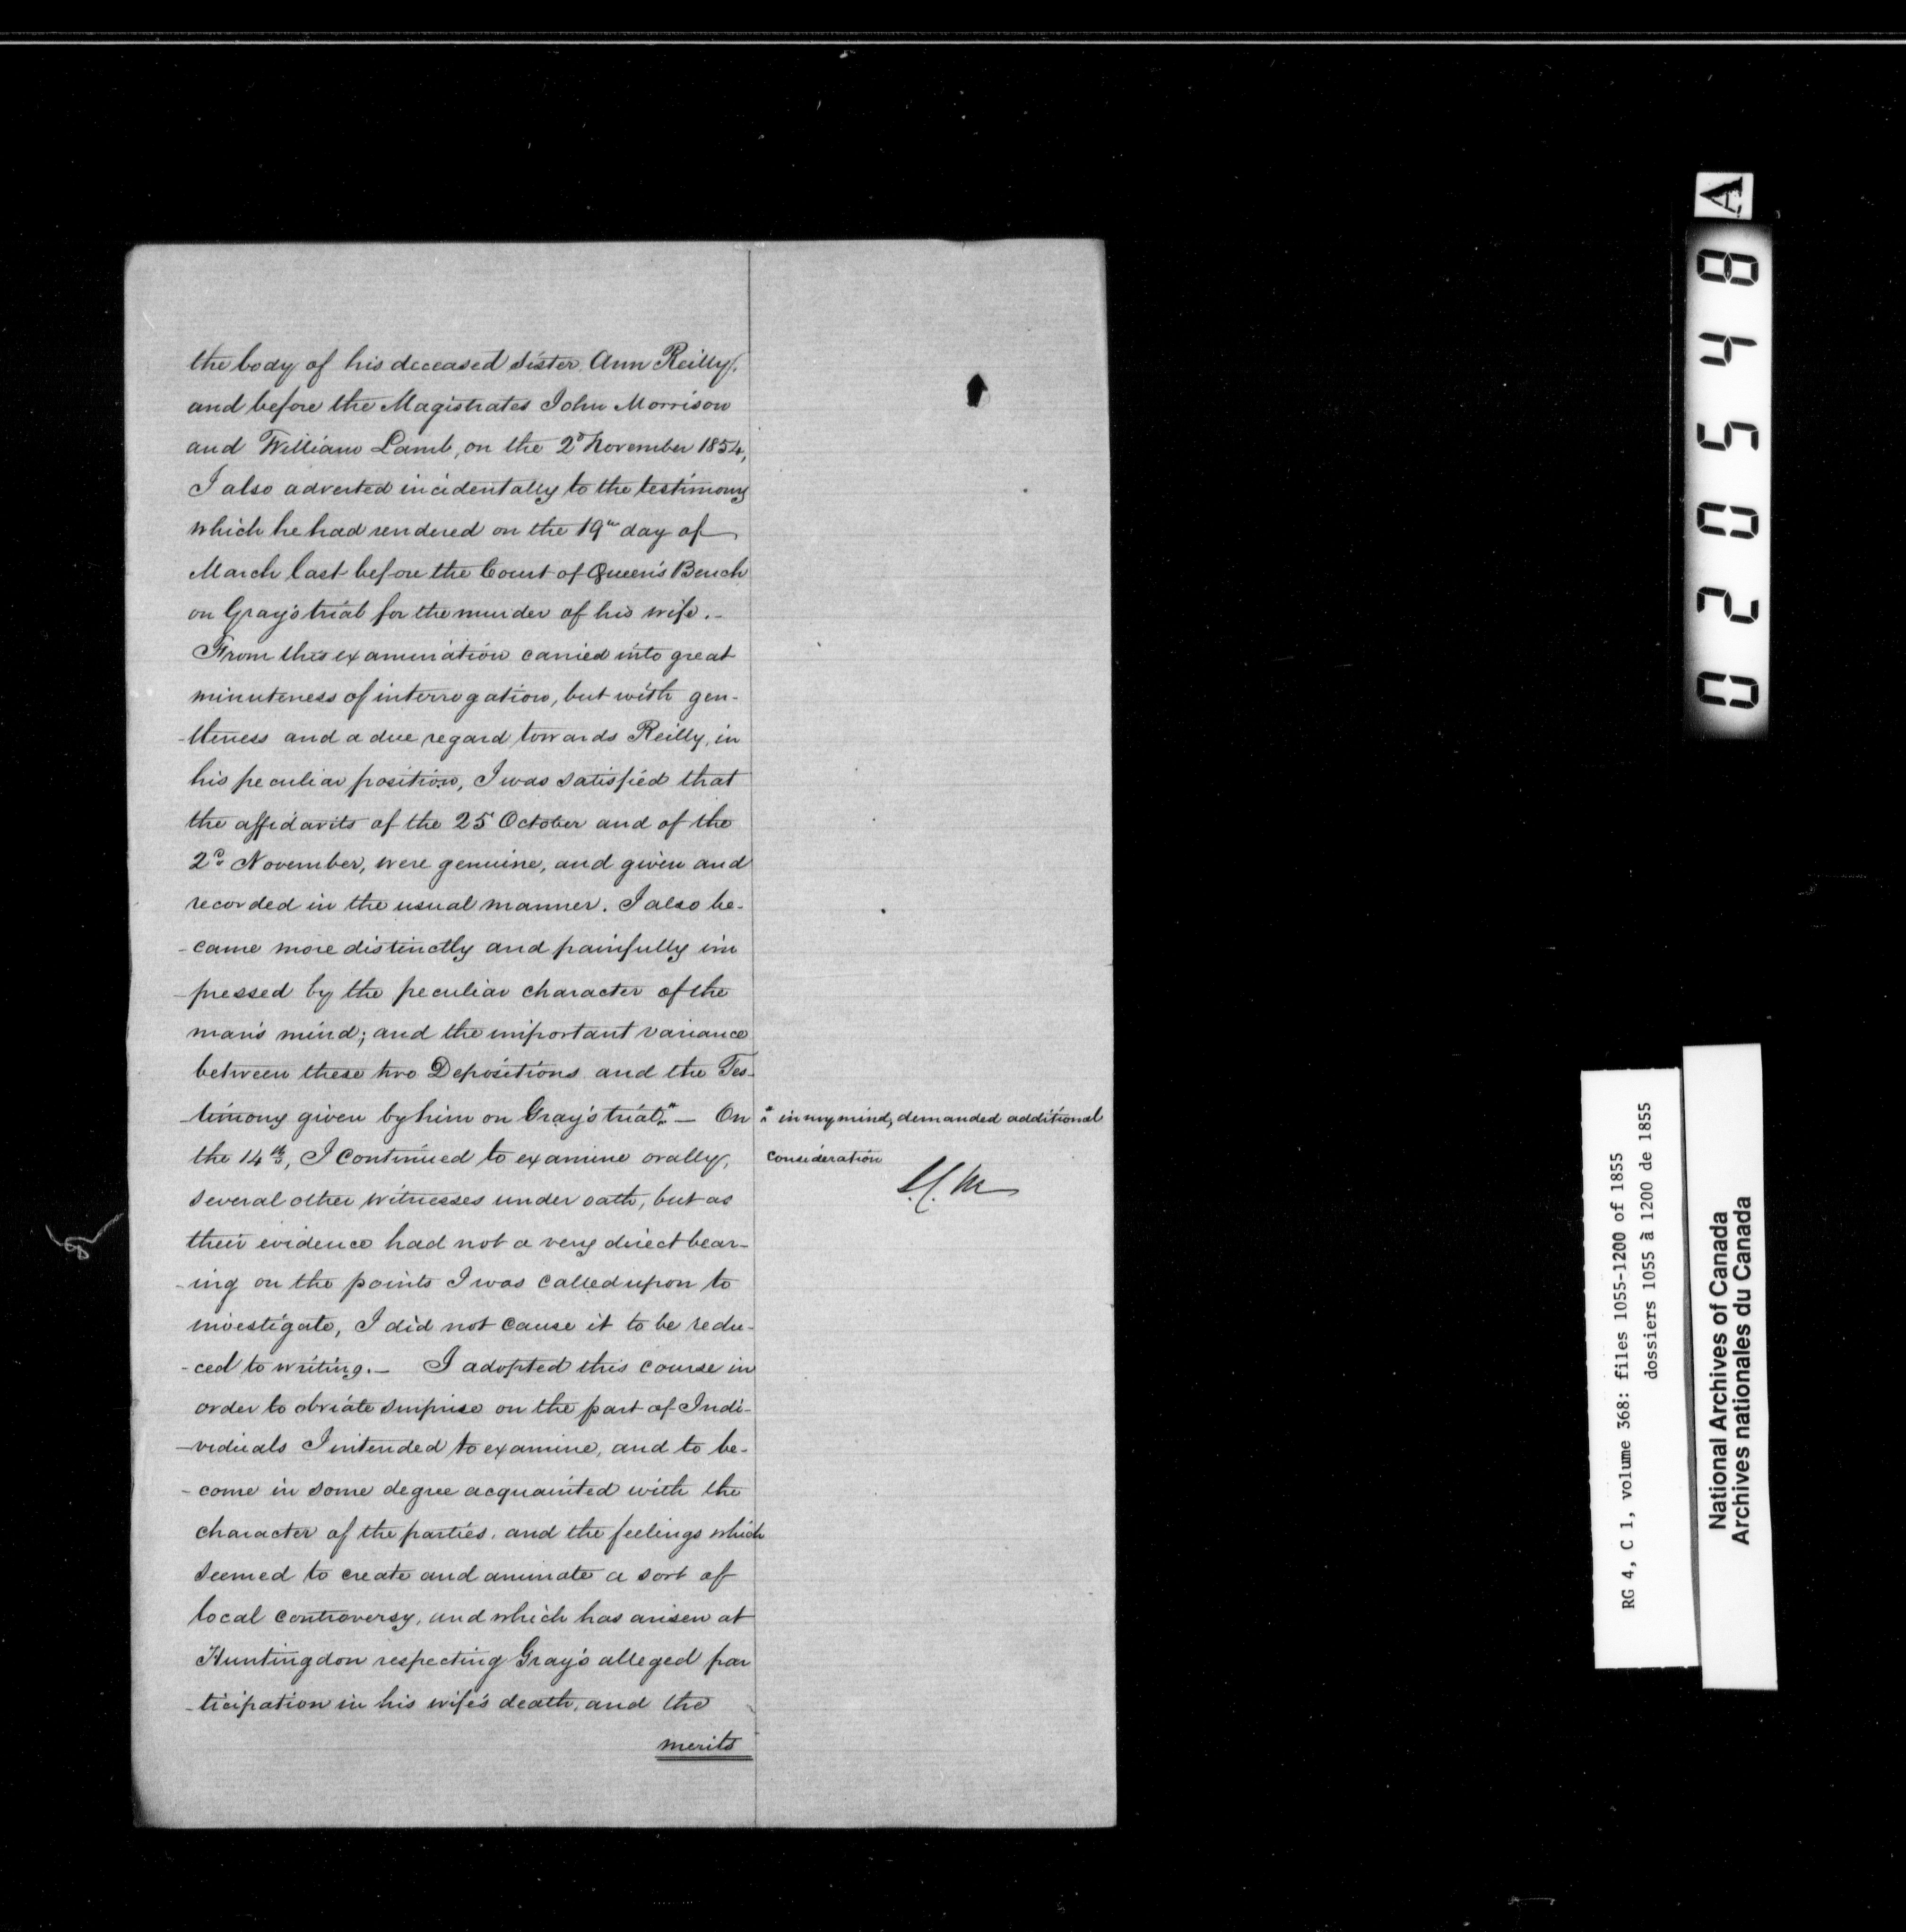 the body of his deceased sister Ann Reilly,
and before the Magistrates John Morrison
and William Lamb, on the 2d November 1854,
I also adverted incidentally to the testimony
which he had rendered on the 19th day of
March last before the Court of Queen's Bench
on Gray's trial for the murder of his wife.-
From this examination carried into great
minuteness of interrogation, but with gen-
-tleness and a due regard towards Reilly, in
his peculiar position, I was satisfied that
the affidavits of the 25 October and of the
2d November, were genuine, and given and
recorded in the usual manner. I also be-
-came more distinctly and painfully im
-pressed by the peculiar character of the
man's mind; and the important variance
between these two Depositions and the Tes-
-timony given by him on Gray's trial.* — On
* in my mind, demanded additional
consideration
the 14th, I continued to examine orally,
several other witnesses under oath, but as
their evidence had not a very direct bear-
-ing on the points I was called upon to
investigate, I did not cause it to be redu-
-ced to writing.— I adopted this course in
order to obviate surprise on the part of Indi-
-viduals I intended to examine, and to be-
-come in some degree acquainted with the
character of the parties, and the feelings which
seemed to create and animate a sort of
local controversy, and which has arisen at
Huntingdon respecting Gray's alleged par
-ticipation in his wife's death, and the
merits
A
020548
RG 4, C 1, volume 368: files 1055-1200 of 1855
dossiers 1055 à 1200 de 1855
National Archives of Canada
Archives nationales du Canada